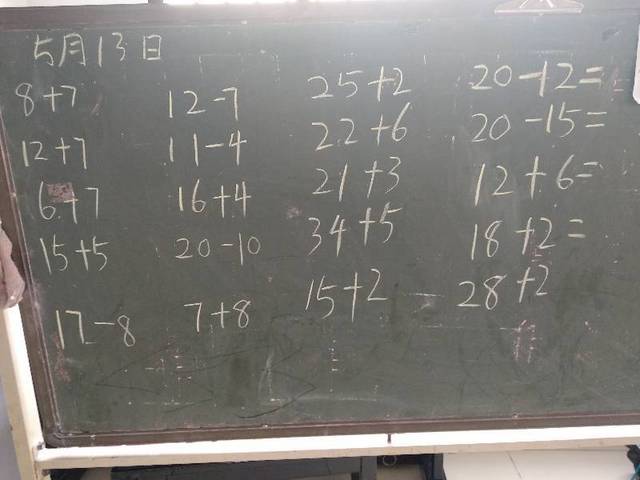 5月13日
8+7 12-7 25+2 20-12=
12+7 11-4 22+6 20-15=
6+7 16+4 21+3 12+6=
15+5 20-10 34+5 18+2=
17-8 7+8 15+2 28+2